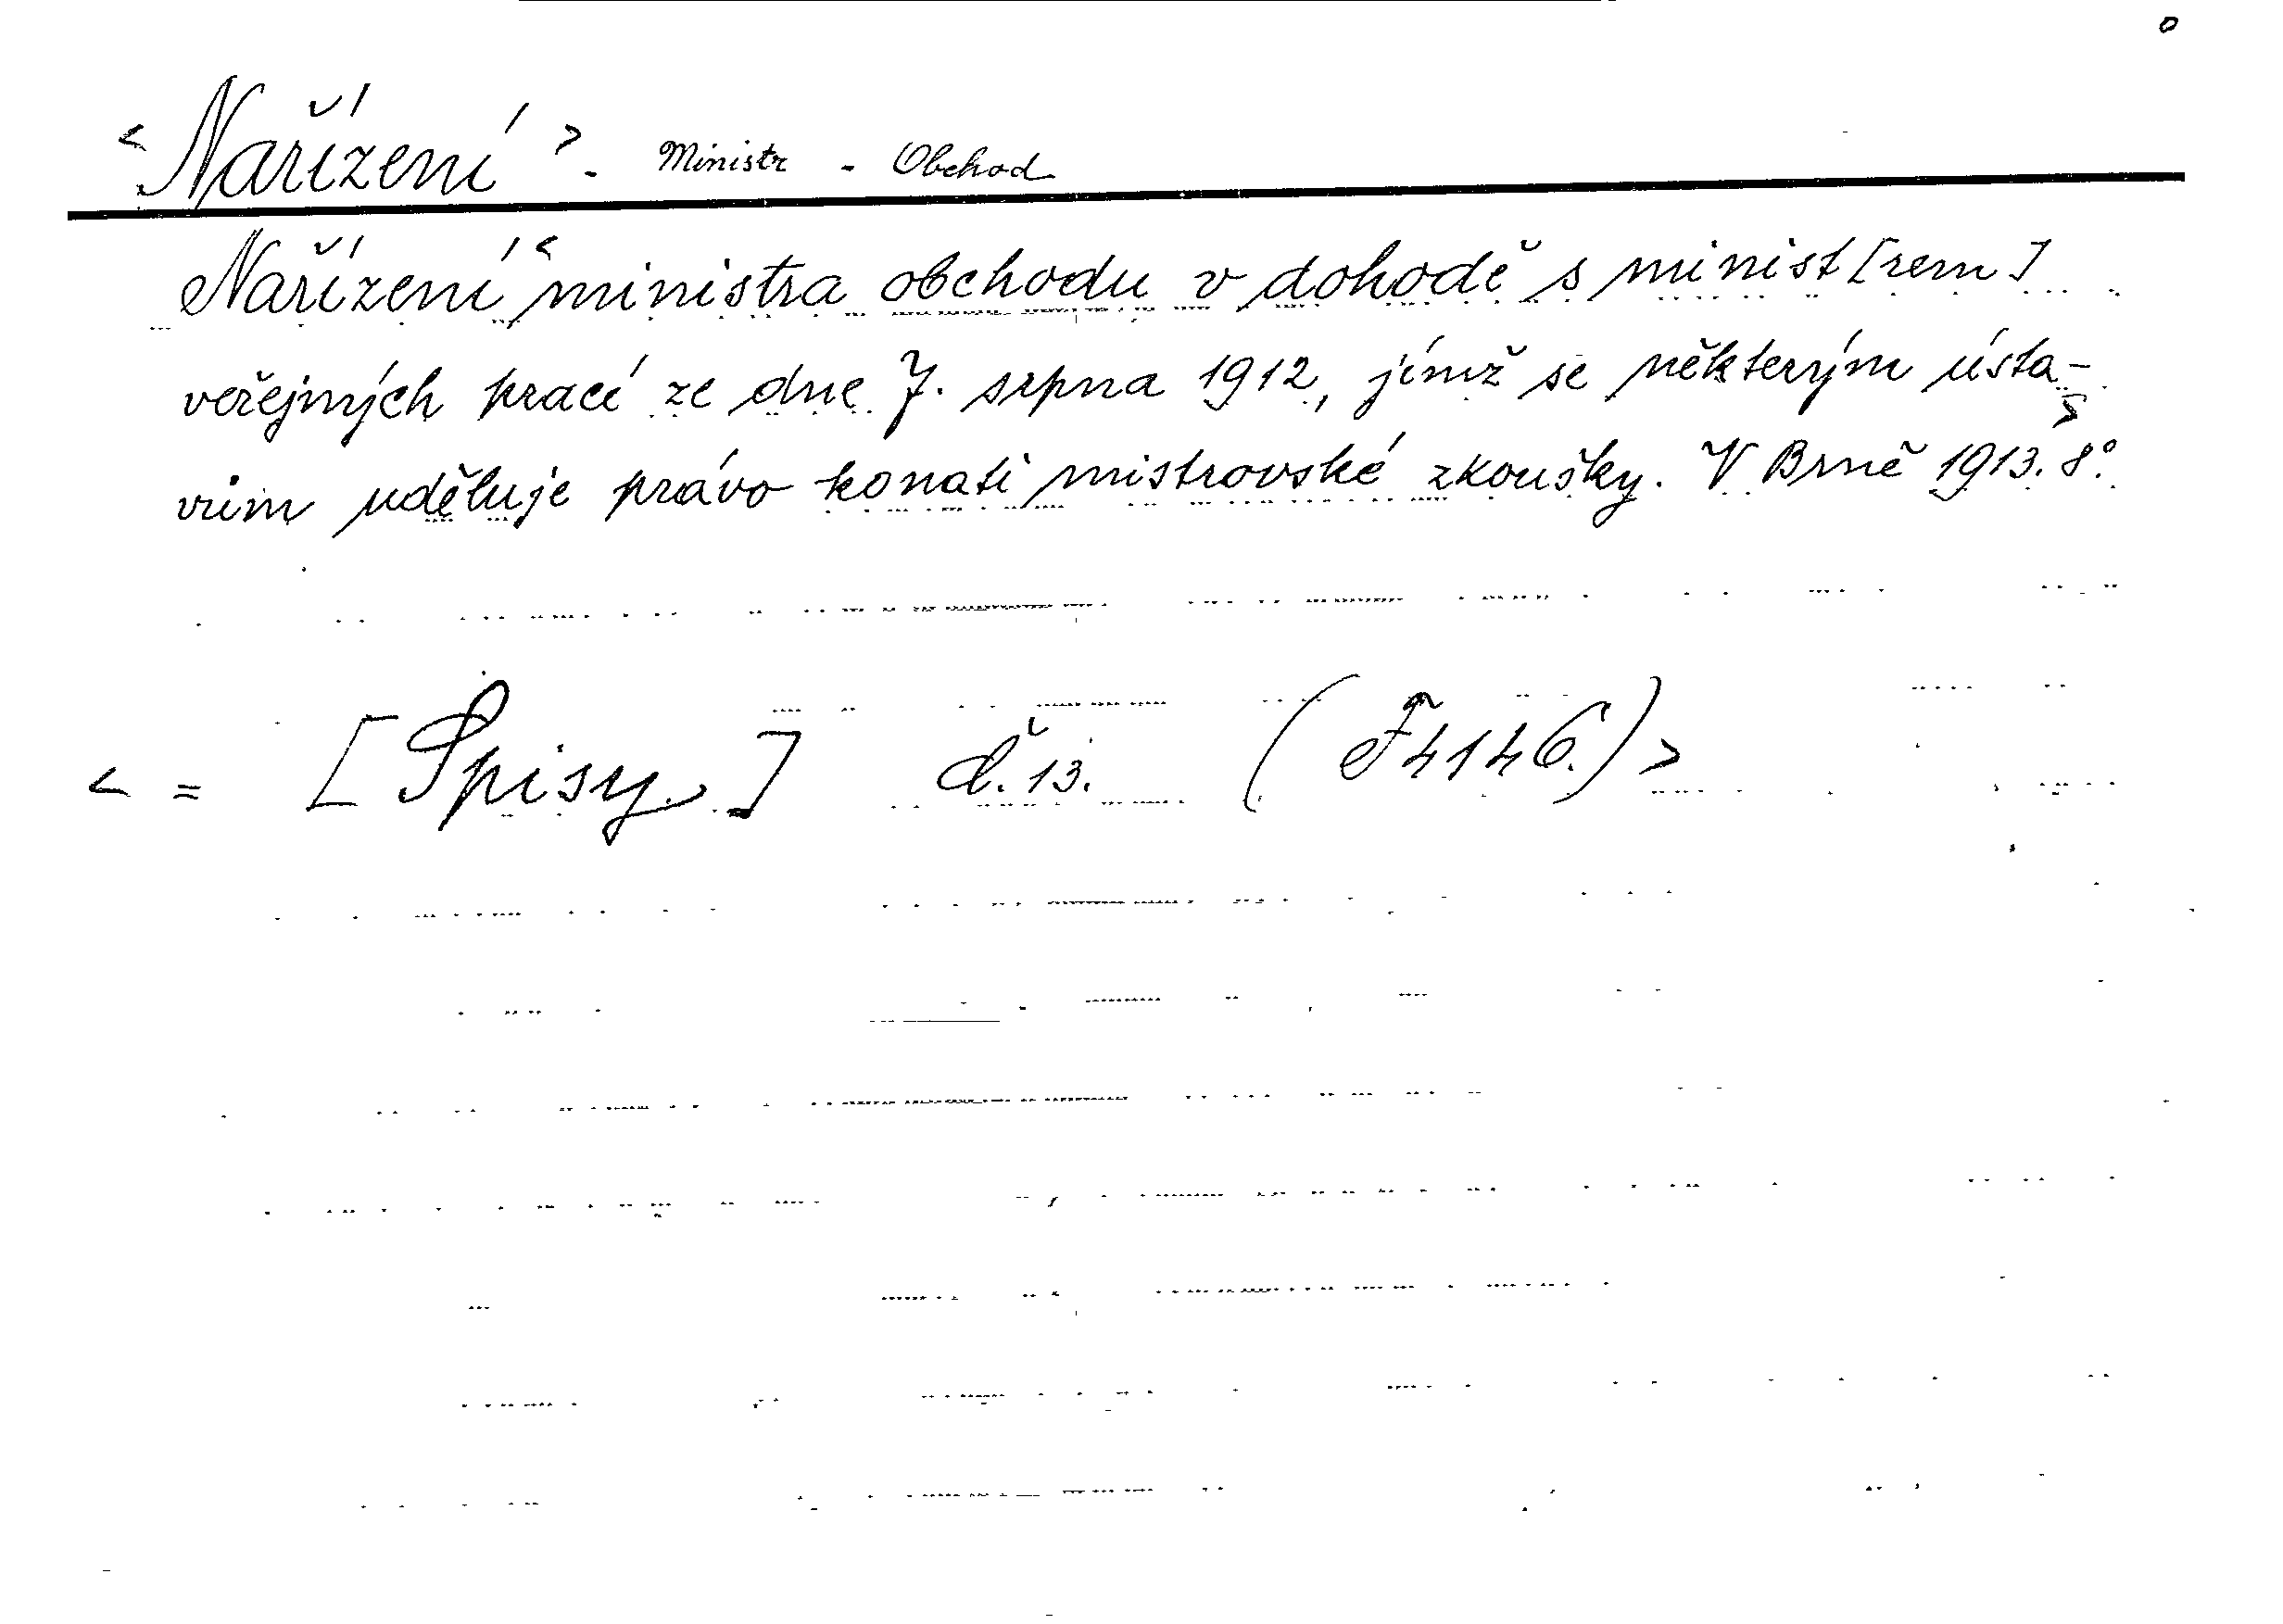 <Nařízení>. Ministr - Obchod
Nařízení < ministra obchodu v dohodě s minist[rem]
veřejných prací ze dne 7. srpna 1912, jímž se některým ústa-
vům uděluje právo konati mistrovské zkoušky. V Brně 1913. 8°. >
< = [Spisy.] č. 13. (F4146.) >